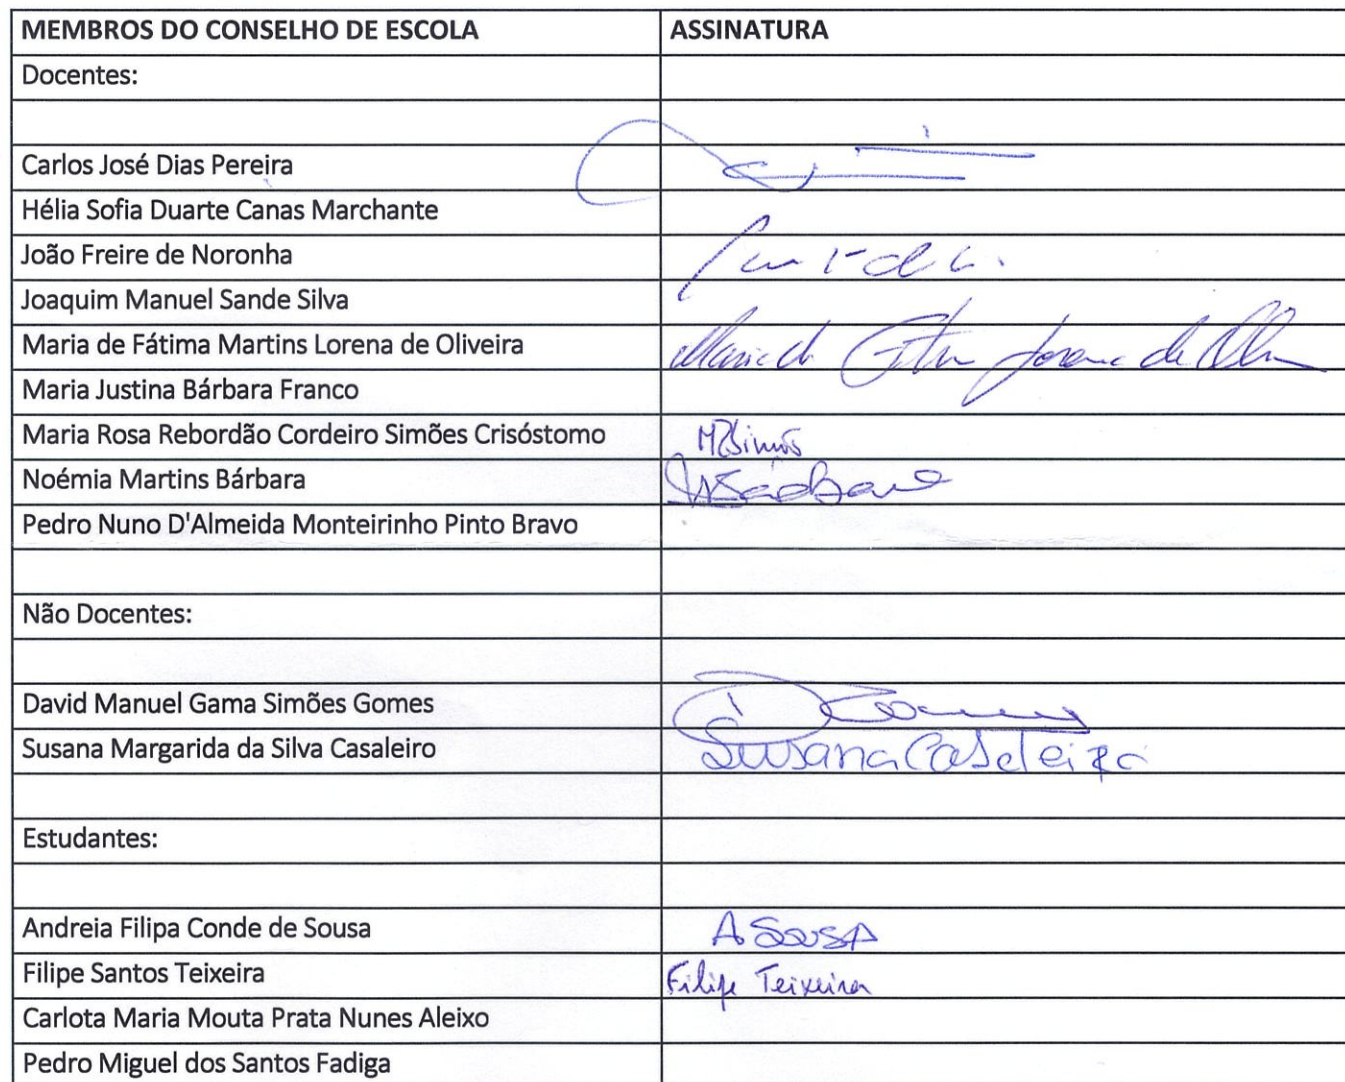 MEMBROS DO CONSELHO DE ESCOLA ASSINATURA
Docentes:
Carlos José Dias Pereira
Hélia Sofia Duarte Canas Marchante
João Freire de Noronha
Joaquim Manuel Sande Silva
Maria de Fátima Martins Lorena de Oliveira
Maria Justina Bárbara Franco
Maria Rosa Rebordão Cordeiro Simões Crisóstomo
Noémia Martins Bárbara
Pedro Nuno D'Almeida Monteirinho Pinto Bravo
Não Docentes:
David Manuel Gama Simões Gomes
Susana Margarida da Silva Casaleiro Susana Casaleiro
Estudantes:
Andreia Filipa Conde de Sousa A Sousa
Filipe Santos Teixeira Filipe Teixeira
Carlota Maria Mouta Prata Nunes Aleixo
Pedro Miguel dos Santos Fadiga